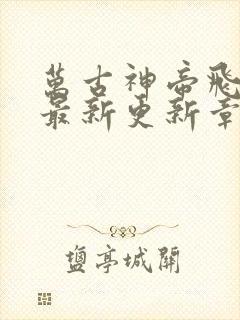 萬古神帝飛
最新更新章
鹽亭城開